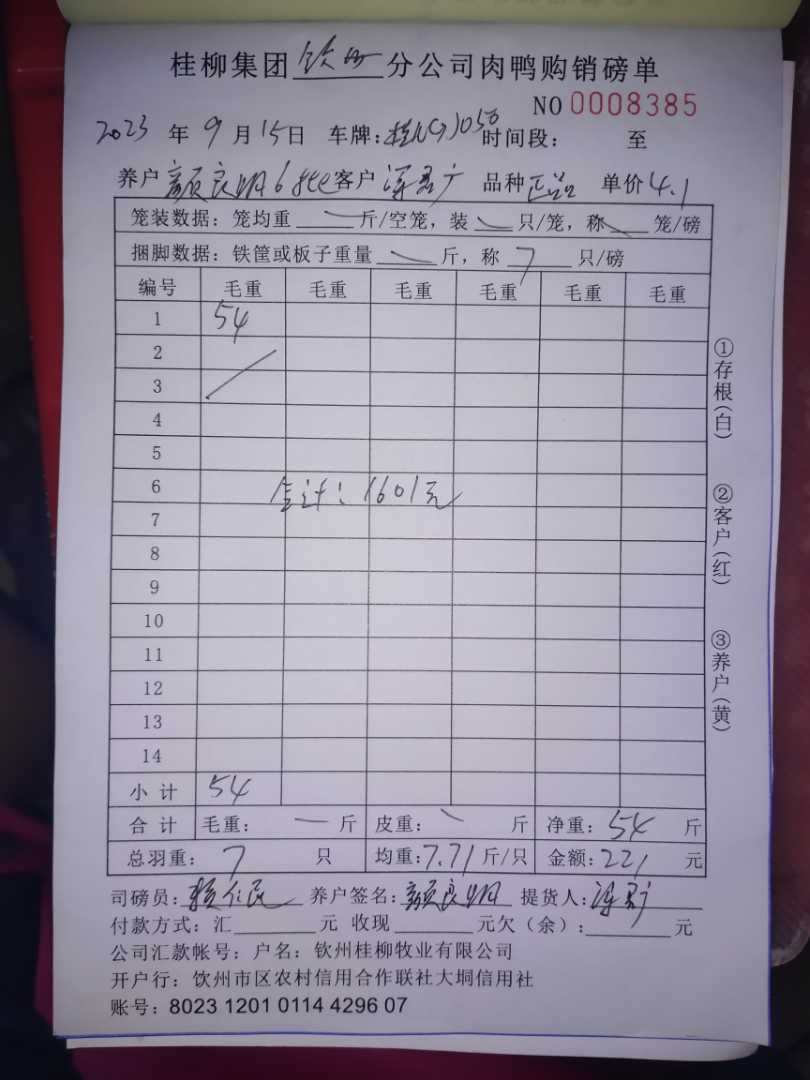 桂柳集团 钦州 分公司肉鸭购销磅单
NO 0008385
2023 年 9 月 15日 车牌: 时间段: 至
养户 颜良明 6批 客户 广 品种 正品 单价 4.1
笼装数据: 笼均重 斤/空笼, 装 只/笼, 称 笼/磅
捆脚数据: 铁筐或板子重量 斤, 称 7 只/磅
编号 毛重 毛重 毛重 毛重 毛重 毛重
1 54
2
3
4
5
6
合计: 1601元
7
8
9
10
11
12
13
14
小 计 54
合 计 毛重: 一 斤 皮重: 斤 净重: 54 斤
总羽重: 7 只 均重: 7.71 斤/只 金额: 221 元
司磅员: 养户签名: 颜良明 提货人:
付款方式: 汇 元 收现 元欠(余): 元
公司汇款帐号: 户名: 钦州桂柳牧业有限公司
开户行: 饮州市区农村信用合作联社大垌信用社
账号: 8023 1201 0114 4296 07
①存根(白)
②客户(红)
③养户(黄)